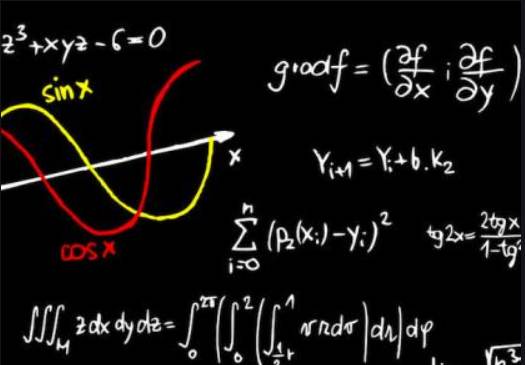 z³+xyz-6=0
sin x
gradf = (∂f/∂x ; ∂f/∂y)
x
Yᵢ₊₁ = Yᵢ + b.K₂
cos x
n ∑ i=0 (p₂(xᵢ)-yᵢ)²
tg2x = 2tgx/1-tg²
∭M z dx dy dz = ∫0 2π (∫0 2 (∫½r 1 v r dv) dr) dφ